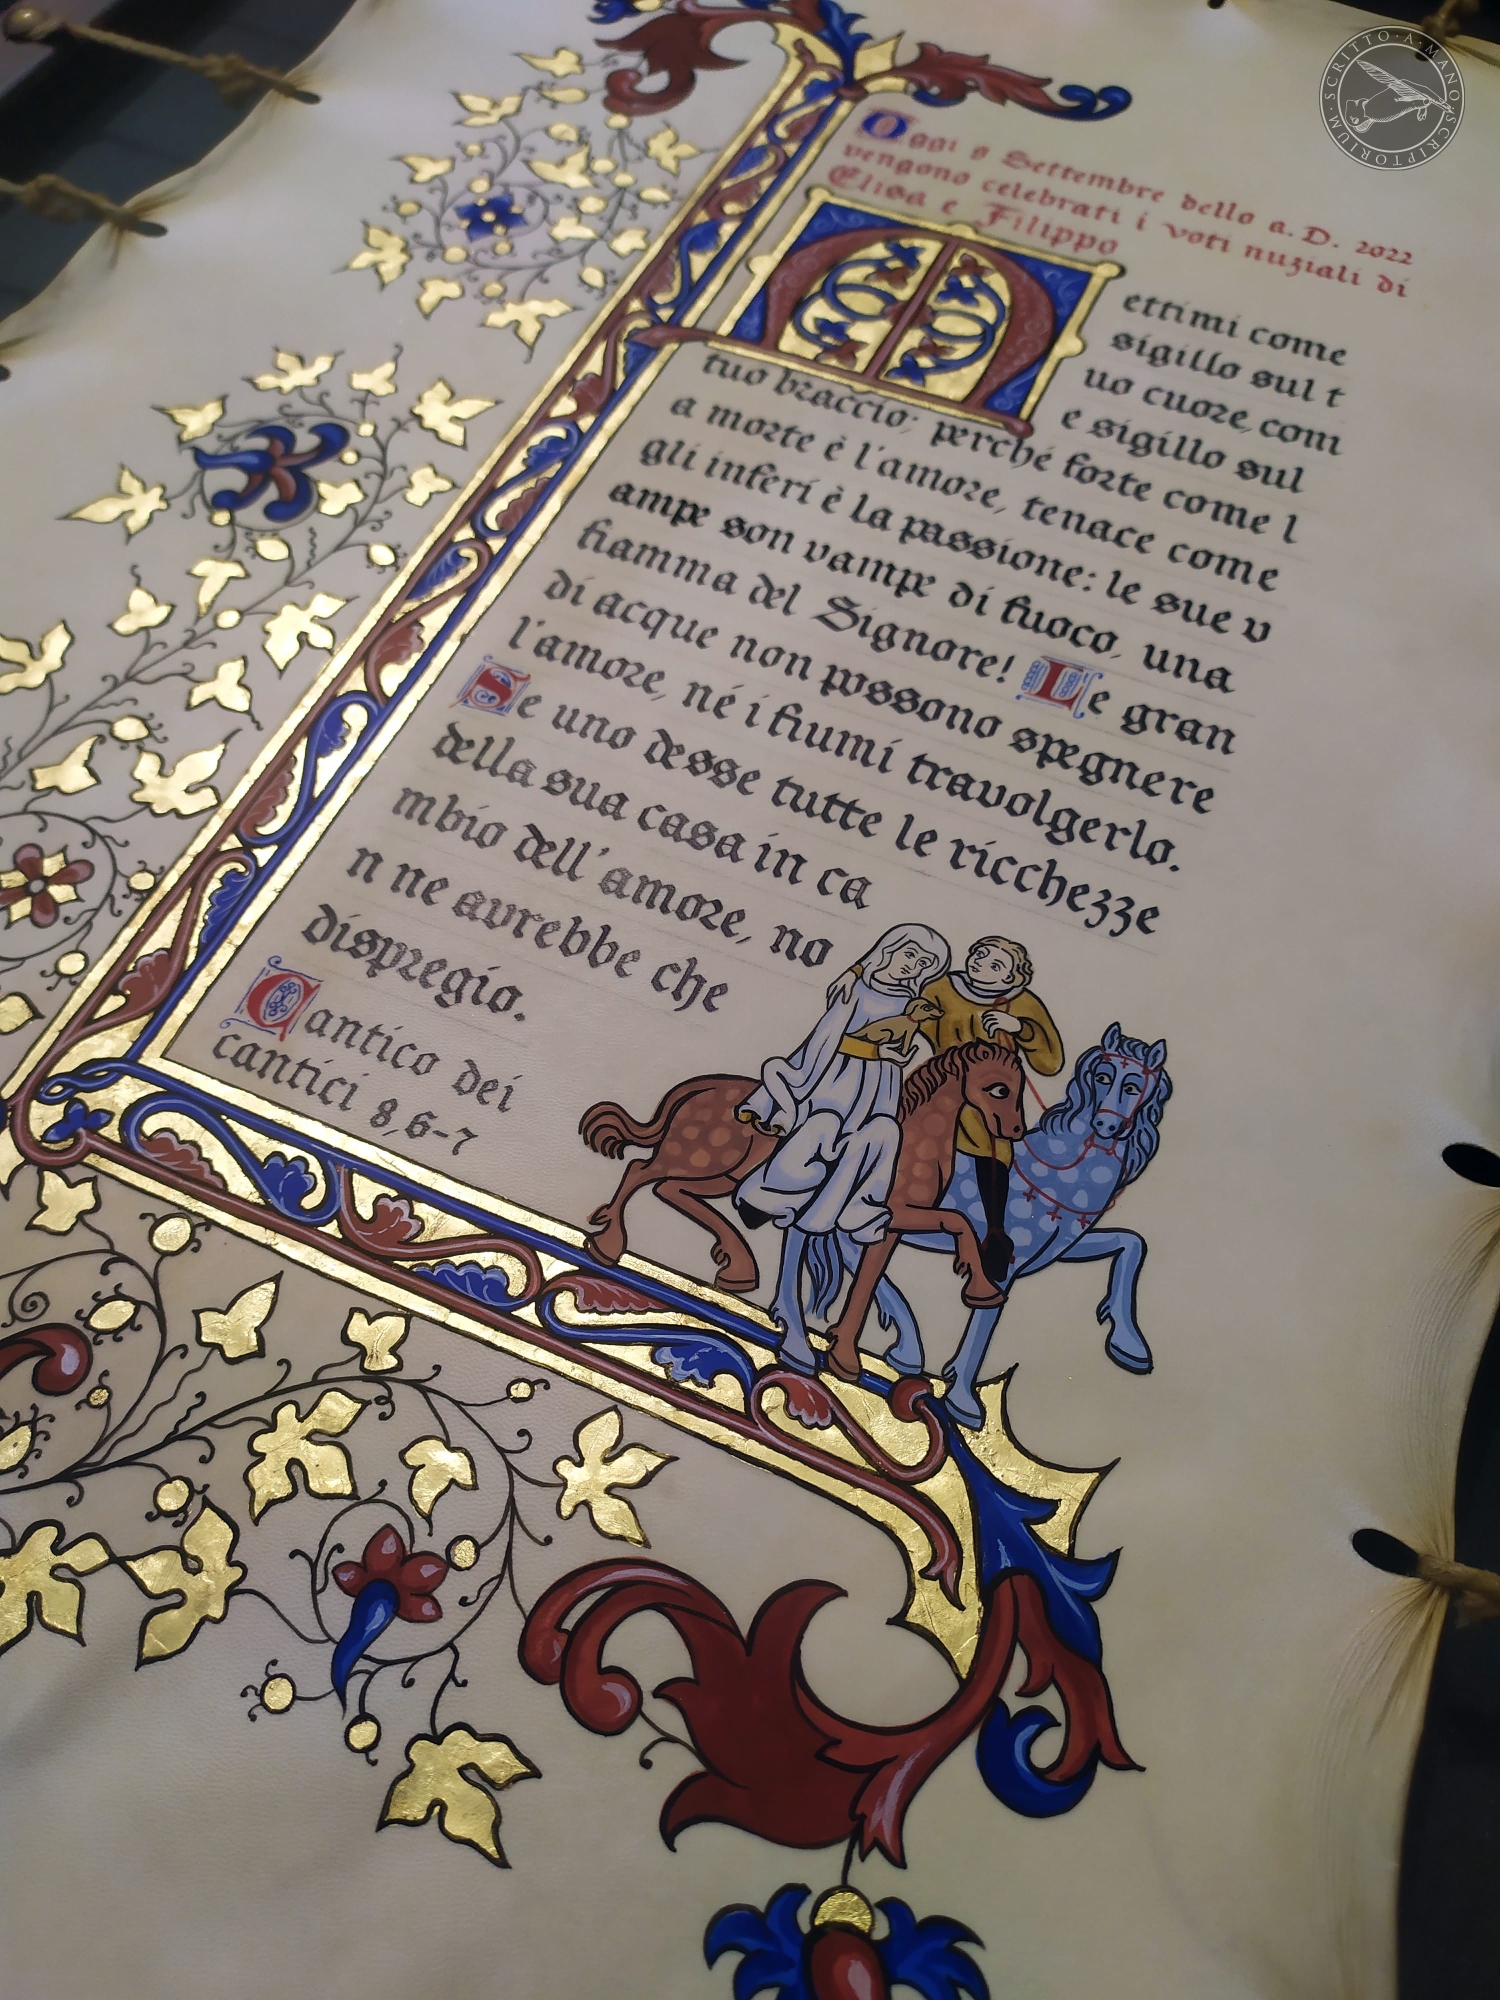 SCRITTO · A · MANO SCRIPTORIUM
Oggi 9 Settembre dello a. D. 2022
vengono celebrati i voti nuziali di
Elisa e Filippo
Mettimi come
sigillo sul t
uo cuore, com
e sigillo sul
tuo braccio; perché forte come l
a morte è l'amore, tenace come
gli inferi è la passione: le sue v
ampe son vampe di fuoco, una
fiamma del Signore! Le gran
di acque non possono spegnere
l'amore, né i fiumi travolgerlo.
Se uno desse tutte le ricchezze
della sua casa in ca
mbio dell'amore, no
n ne avrebbe che
dispregio.
Cantico dei
cantici 8,6-7